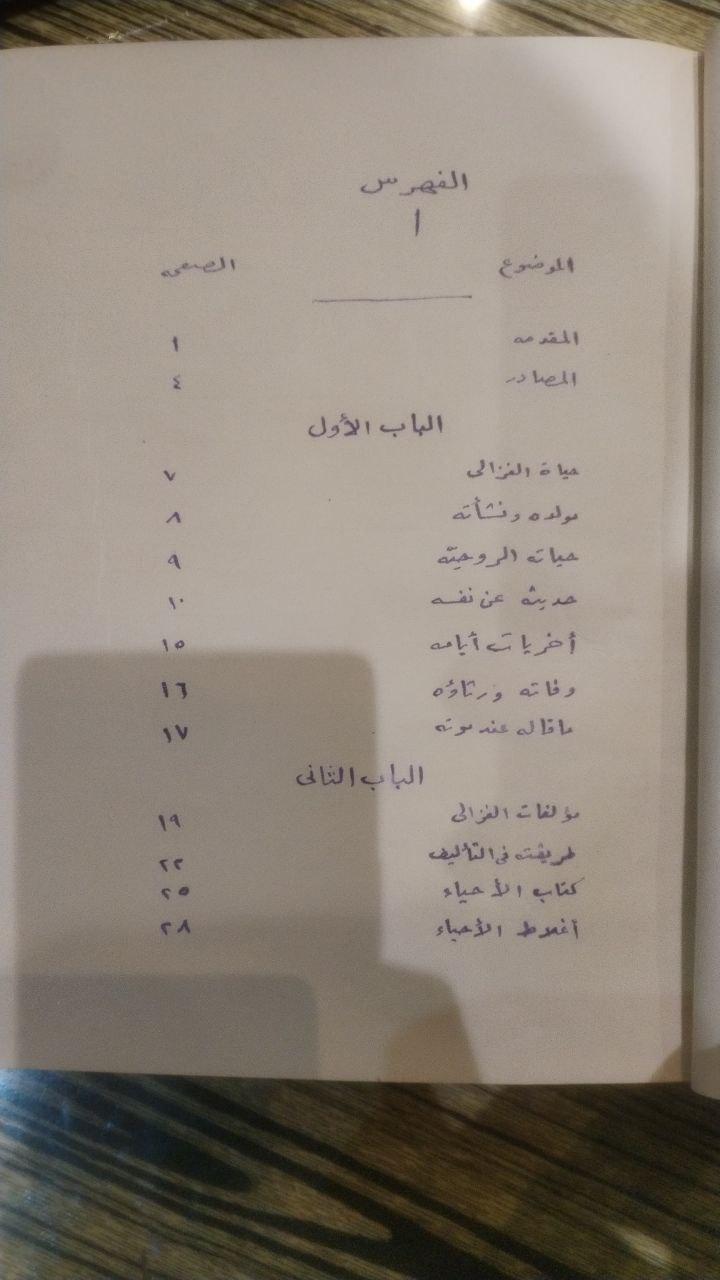 الفهرس
ا
الموضوع الصفحه
المقدمه ١
المصادر ٤
الباب الأول
حياة الغزالى ٧
مولده ونشأته ٨
حياته الروحيّه ٩
حديثه عن نفسه ١٠
أخريات أيامه ١٥
وفاته ورثاؤه ١٦
ماقاله عند موته ١٧
الباب الثانى
مؤلفات الغزالى ١٩
طريقته فى التأليف ٢٢
كتاب الأحياء ٢٥
أغلاط الأحياء ٢٨